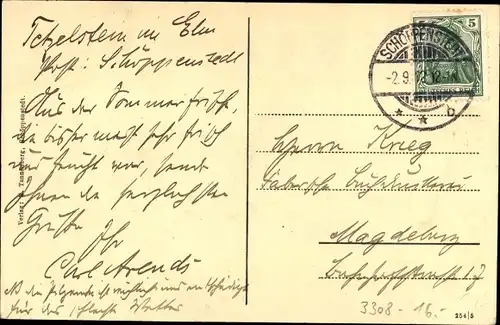 Tetzelstein im Elm
Post: Schöppenstedt
Aus der Sommerfrische,
die bisher mehr sehr frisch
und feucht war, sendet
Ihnen die herzlichsten
Grüße
Ihr
Carl Arends
für das schlechte Wetter
Verlag: Tannenberg, Schöppenstedt.
SCHÖPPENSTEDT
-2.9.
* * b
5
DEUTSCHES REICH
Herrn Krieg
Faber'sche Buchdruckerei
Magdeburg
Bahnhofstraße 17
3308 - 16.-
254 5